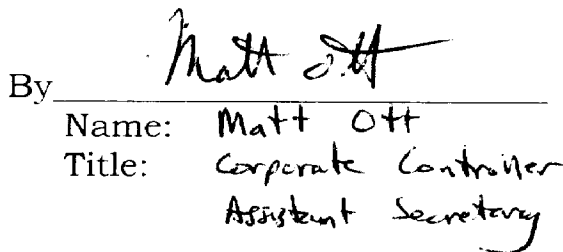 By Matt Ott
Name: Matt Ott
Title: Corporate Controller
Assistant Secretary